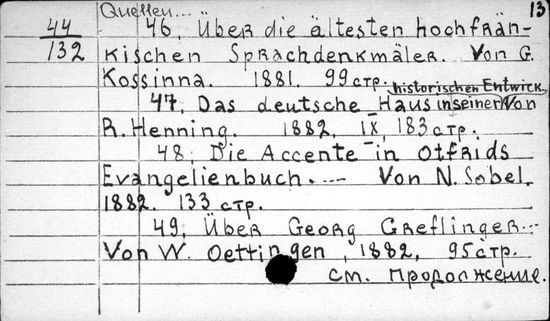 Quellen... 13
44 46, Über die ältesten hochfrän-
132 kischen Sprachdenkmäler. Von G.
Kossinna. 1881. 99 стр.
historischen Entwick.
47, Das deutsche Haus in seiner Von
R. Henning. 1882, IX, 183 стр.
48, Die Accente in Otfrids
Evangelienbuch. ... Von N. Sobel.
1882. 133 стр.
49, Über Georg Greflinger...
Von W. Oettingen, 1882, 95 стр.
см. продолжение.